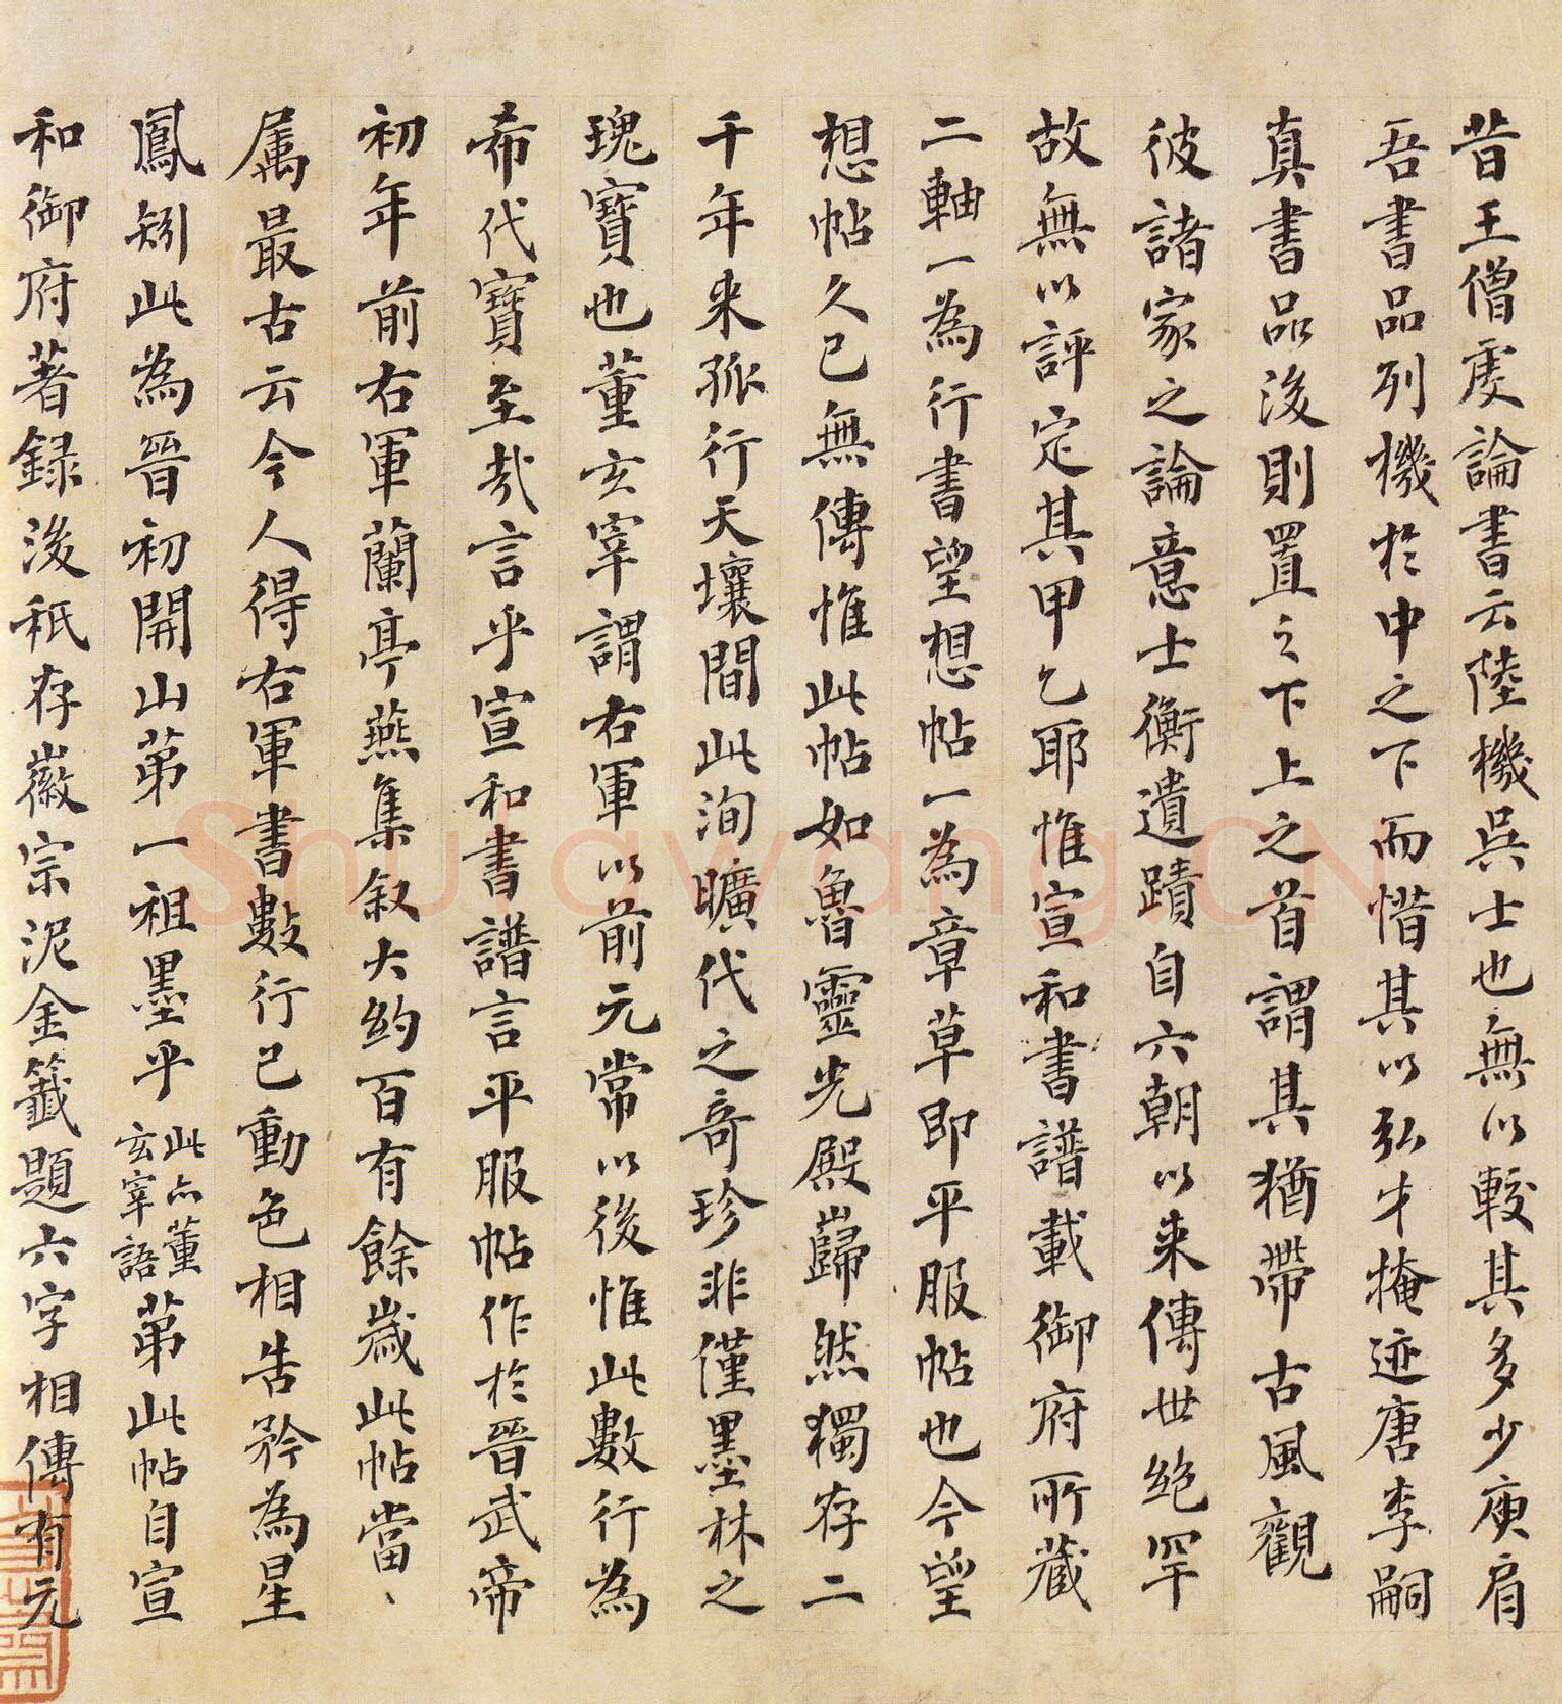 昔王僧虔論書云陸機吳士也無以較其多少庾肩
吾書品列機於中之下而惜其以弘才掩迹唐李嗣
真書品後則置之下上之首謂其猶帶古風觀
彼諸家之論意士衡遺蹟自六朝以来傳世絶罕
故無以評定其甲乙耶惟宣和書譜載御府所藏
二軸一為行書望想帖一為章草即平服帖也今望
想帖久已無傳惟此帖如魯靈光殿巋然獨存二
千年来孤行天壤間此洵曠代之奇珍非僅墨林之
瑰寶也董玄宰謂右軍以前元常以後惟此數行為
希代寶至哉言乎宣和書譜言平服帖作於晉武帝
初年前右軍蘭亭燕集叙大約百有餘歲此帖當、
属最古云今人得右軍書數行已動色相告矜為星
鳳矧此為晉初開山苐一祖墨乎此亦董玄宰語苐此帖自宣
和御府著録後秖存徽宗泥金籤題六字相傳有元
Shufawang.CN